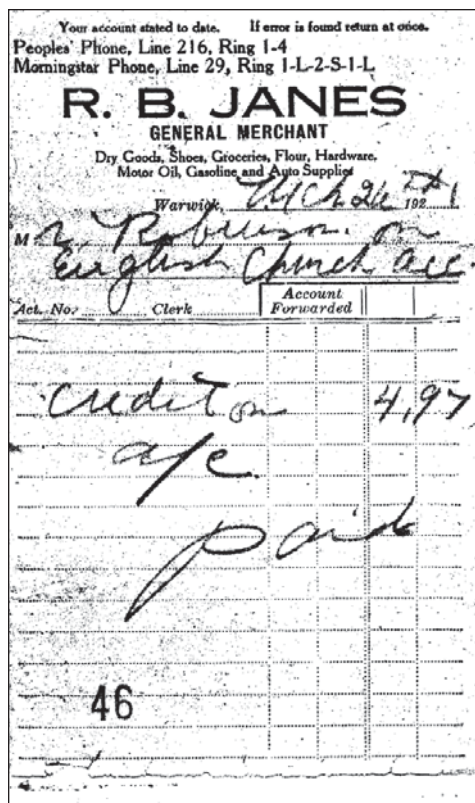 Your account stated to date. If error is found return at once.
Peoples' Phone, Line 216, Ring 1-4
Morningstar Phone, Line 29, Ring 1-L-2-S-1-L
R. B. JANES
GENERAL MERCHANT
Dry Goods, Shoes, Groceries, Flour, Hardware,
Motor Oil, Gasoline and Auto Supplies
Warwick, Mch 26th 1921
M Robinson on
English Church acc.
Act. No. Clerk Account Forwarded
Credit on 4,97
a/c
paid
46